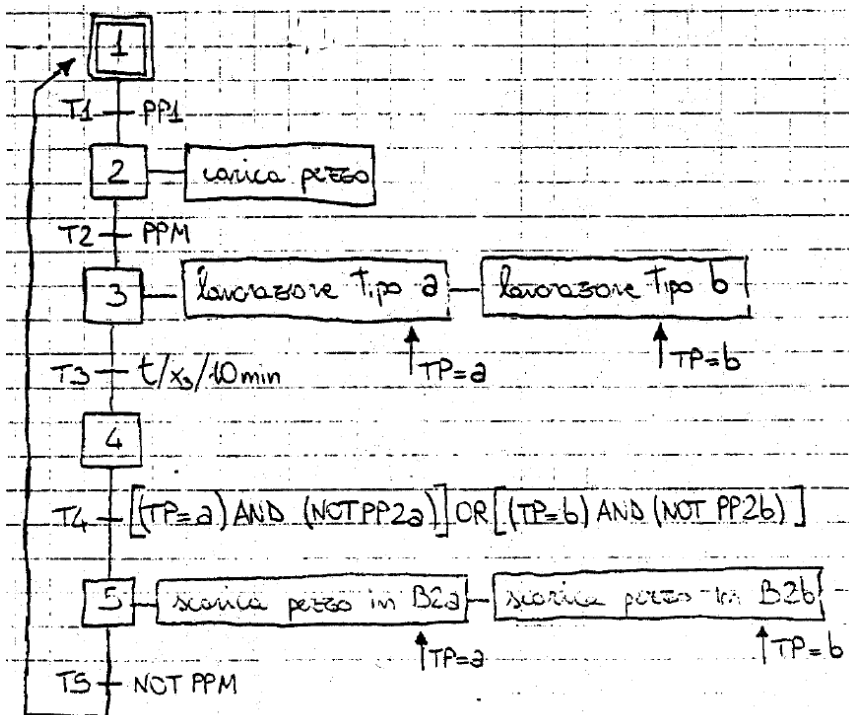 1
T1 PP1
2 carica pezzo
T2 PPM
3 lavorazione Tipo a lavorazione Tipo b
T3 t/x3/10min TP=a TP=b
4
T4 [(TP=a) AND (NOT PP2a)] OR [(TP=b) AND (NOT PP2b)]
5 scarica pezzo in B2a scarica pezzo in B2b
TP=a TP=b
T5 NOT PPM